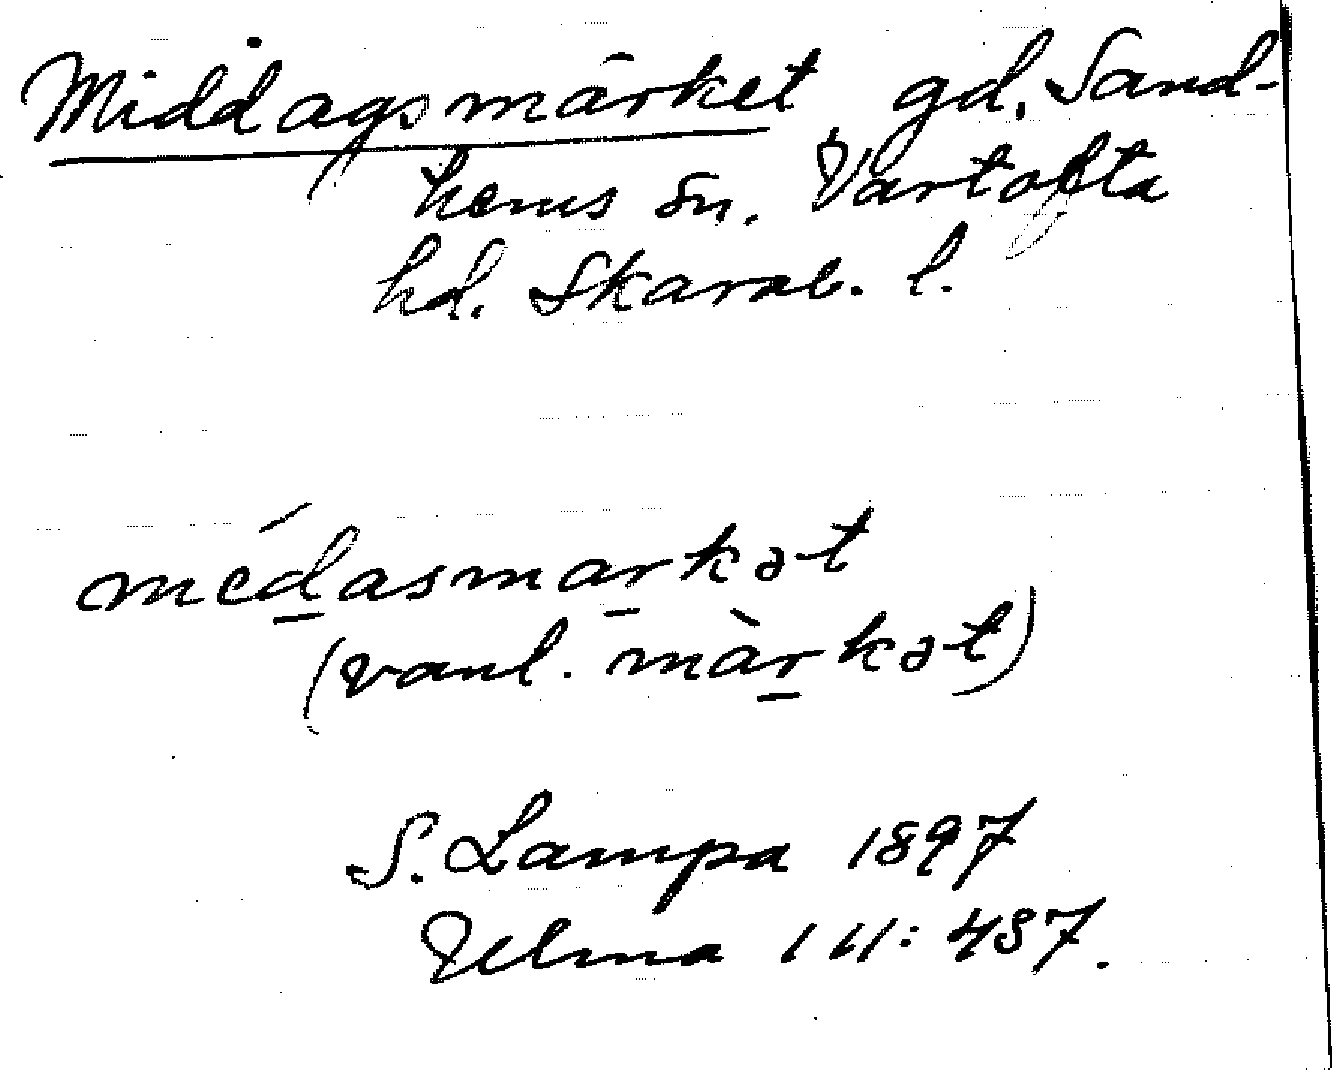 Middagsmärket gd. Sand-
hems sn. Vartofta
hd. Skarab. l.
médasmarkət
(vanl. màrkət)
S. Lampa 1897
Ulma 111: 487.